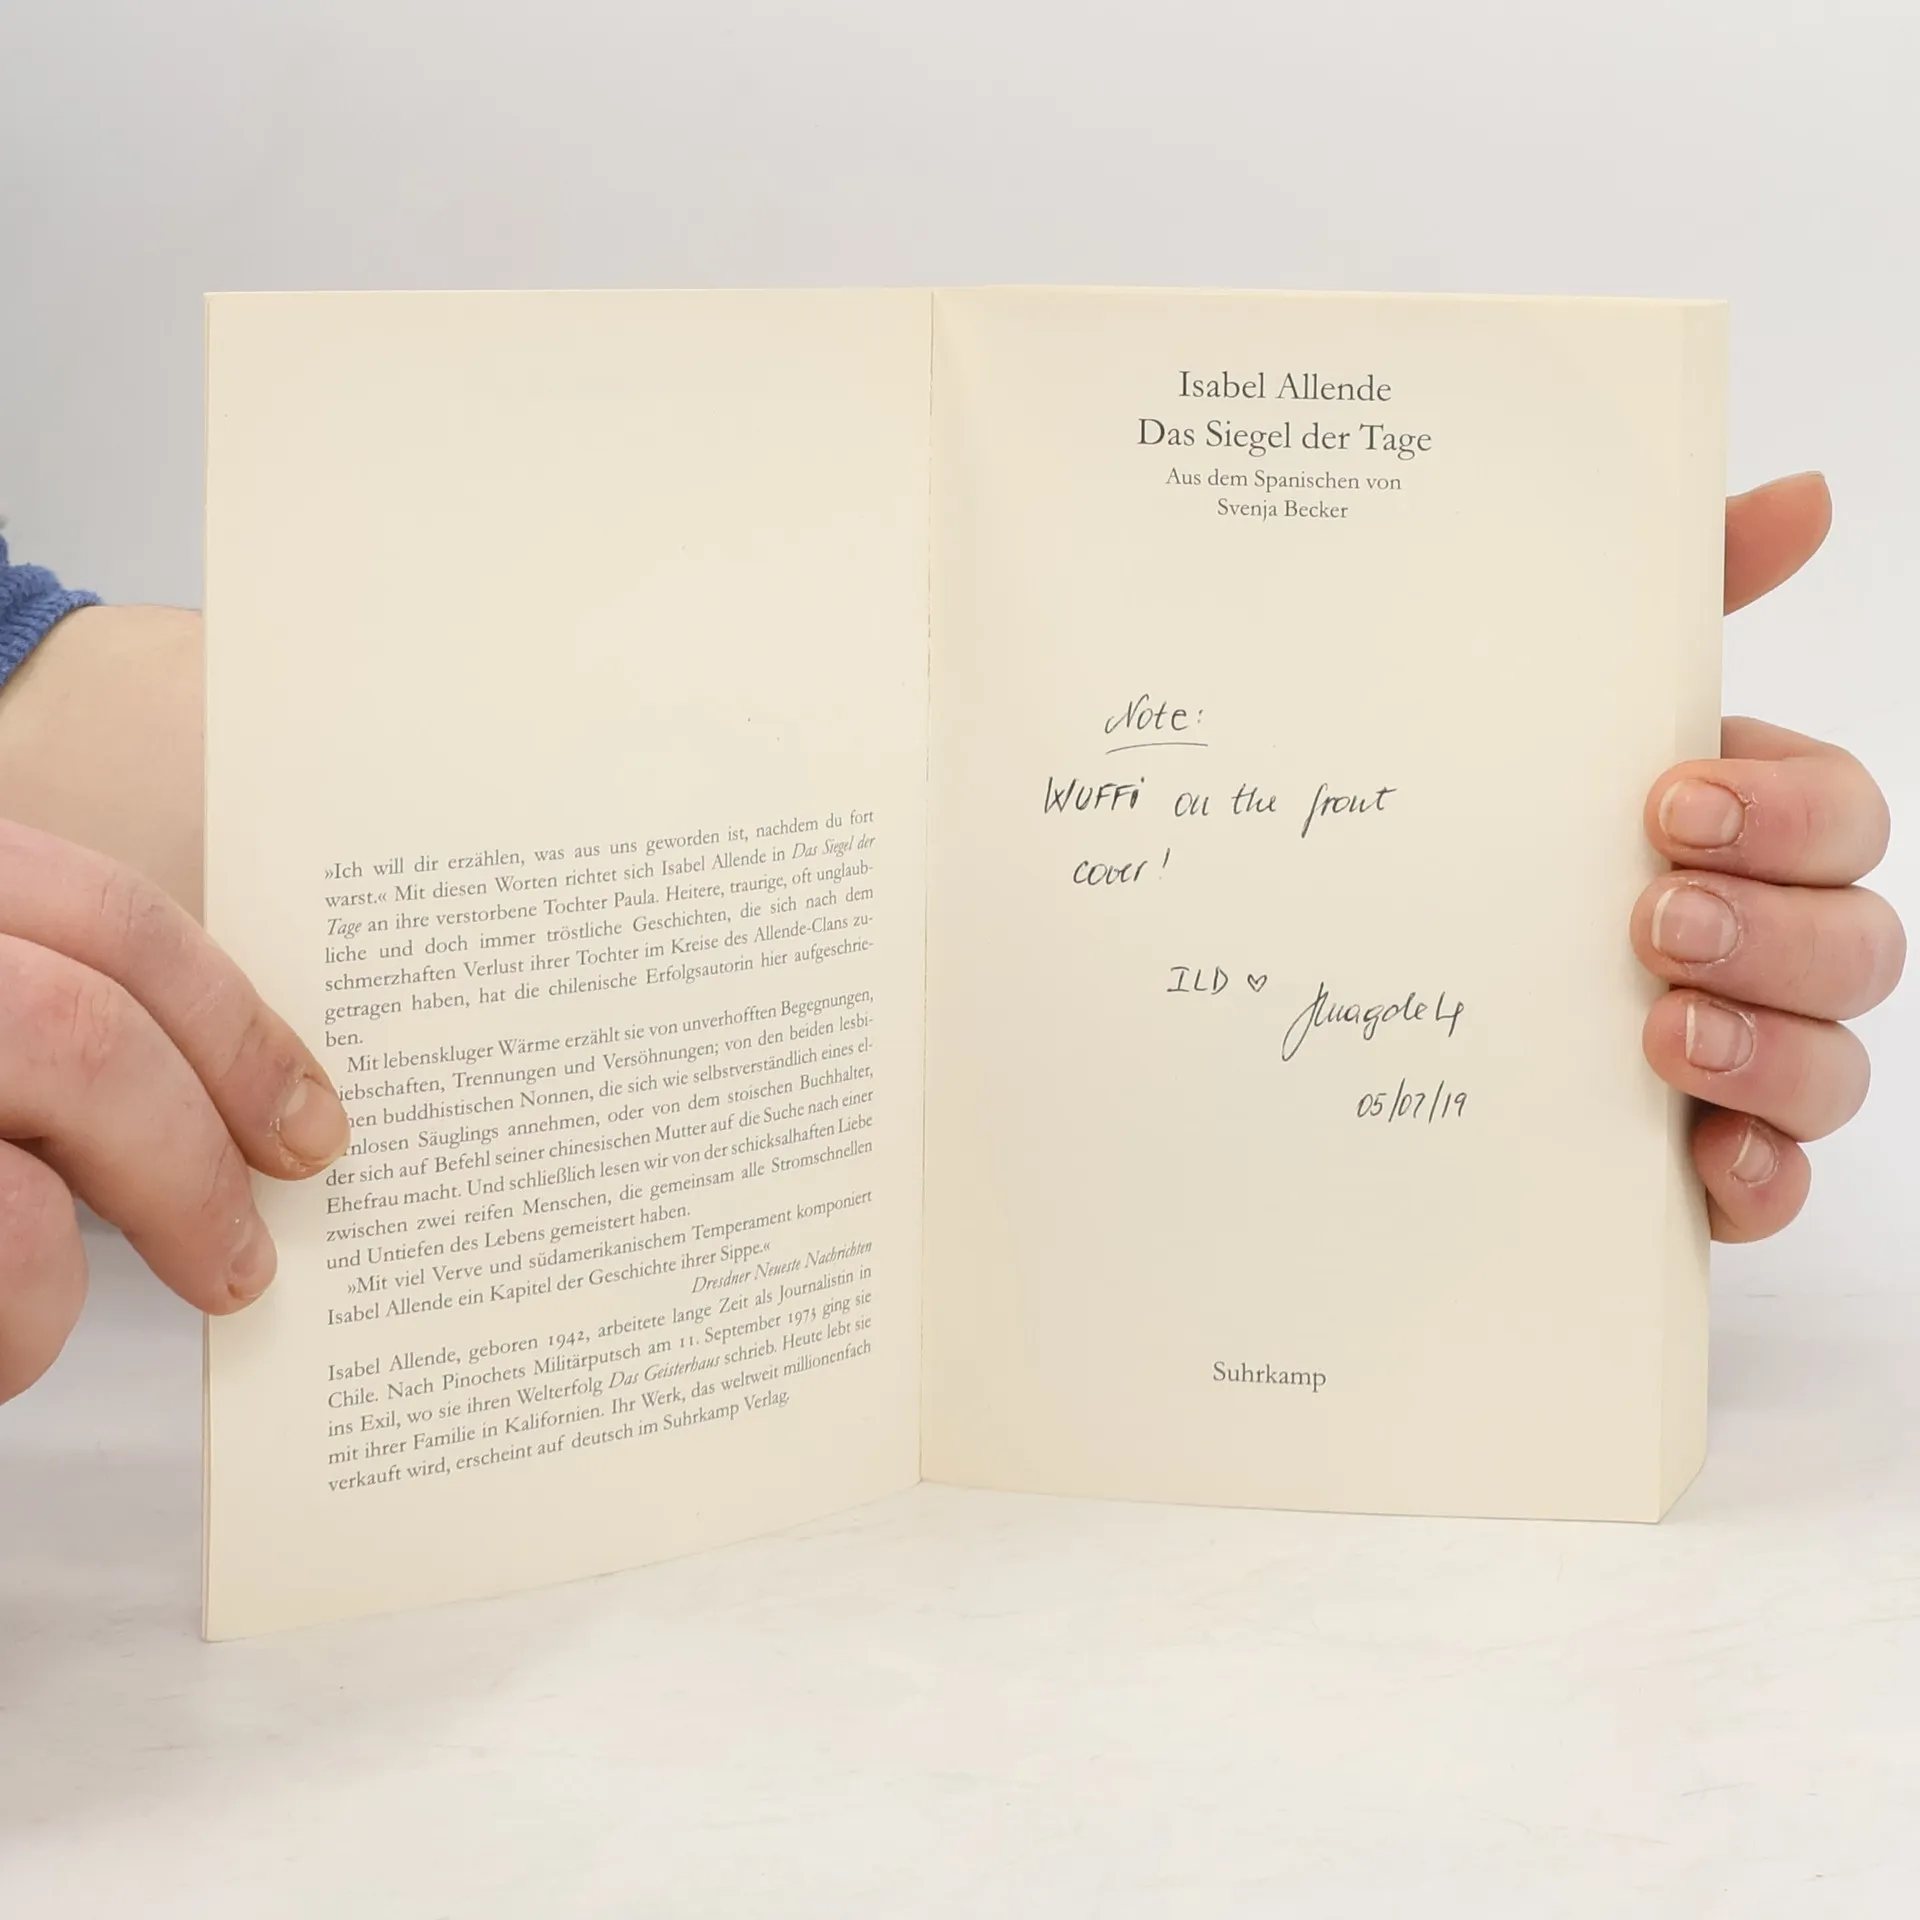 »Ich will dir erzählen, was aus uns geworden ist, nachdem du fort
warst.« Mit diesen Worten richtet sich Isabel Allende in Das Siegel der
Tage an ihre verstorbene Tochter Paula. Heitere, traurige, oft unglaub-
liche und doch immer tröstliche Geschichten, die sich nach dem
schmerzhaften Verlust ihrer Tochter im Kreise des Allende-Clans zu-
getragen haben, hat die chilenische Erfolgsautorin hier aufgeschrie-
ben.
Mit lebenskluger Wärme erzählt sie von unverhofften Begegnungen,
iebschaften, Trennungen und Versöhnungen; von den beiden lesbi-
hen buddhistischen Nonnen, die sich wie selbstverständlich eines el-
rnlosen Säuglings annehmen, oder von dem stoischen Buchhalter,
der sich auf Befehl seiner chinesischen Mutter auf die Suche nach einer
Ehefrau macht. Und schließlich lesen wir von der schicksalhaften Liebe
zwischen zwei reifen Menschen, die gemeinsam alle Stromschnellen
und Untiefen des Lebens gemeistert haben.
»Mit viel Verve und südamerikanischem Temperament komponiert
Isabel Allende ein Kapitel der Geschichte ihrer Sippe.«
Dresdner Neueste Nachrichten
Isabel Allende, geboren 1942, arbeitete lange Zeit als Journalistin in
Chile. Nach Pinochets Militärputsch am 11. September 1973 ging sie
ins Exil, wo sie ihren Welterfolg Das Geisterhaus schrieb. Heute lebt sie
mit ihrer Familie in Kalifornien. Ihr Werk, das weltweit millionenfach
verkauft wird, erscheint auf deutsch im Suhrkamp Verlag.
Isabel Allende
Das Siegel der Tage
Aus dem Spanischen von
Svenja Becker
Note:
WUFFi on the front
cover!
ILD ♡
05/07/19
Suhrkamp